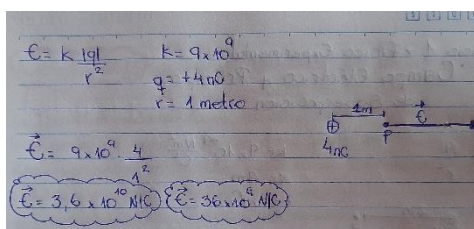 Ē = K |q| / r²
K = 9x10⁹
q = +4nC
r = 1 metro
1m
E⃗
P
4nC
E⃗ = 9x10⁹ . 4 / 1²
E⃗ = 3,6 x 10¹⁰ N/C
E⃗ = 36x10⁹ N/C